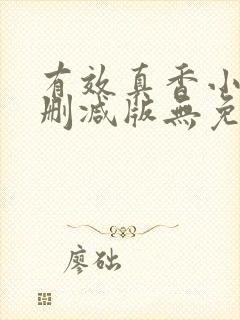 有效真香小
删减版無免
廖础